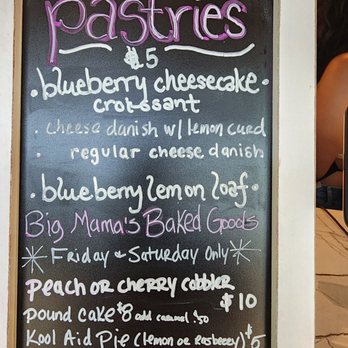 pastries
$5
• blueberry cheesecake •
croissant
• cheese danish w/ lemon curd
• regular cheese danish
• blueberry lemon loaf •
Big Mama's Baked Goods
* Friday & Saturday Only *
peach or cherry cobbler
$10
pound cake $8 add caramel .50
Kool Aid Pie (lemon or rasbeery) $5